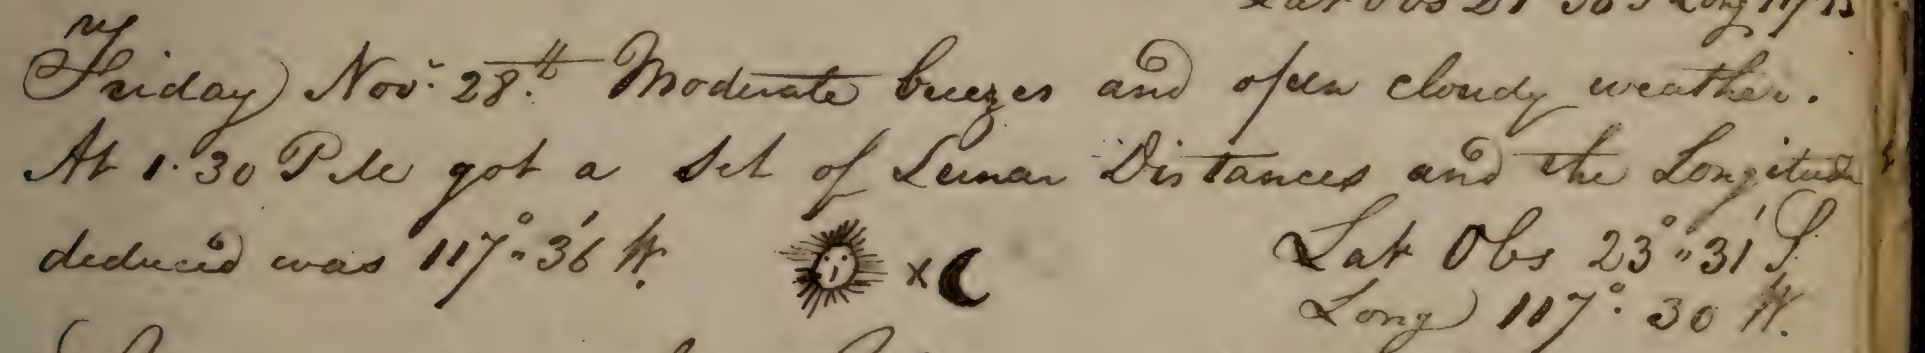 Lat Obs 21° 30 S Long 117 15
Friday Nov: 28th Moderate breezes and open cloudy weather.
At 1.30 P M got a Set of Lunar Distances and the Longitude
deduced was 117°" 36' W. x
Lat Obs 23°" 31' S.
Long 117°: 30 W.